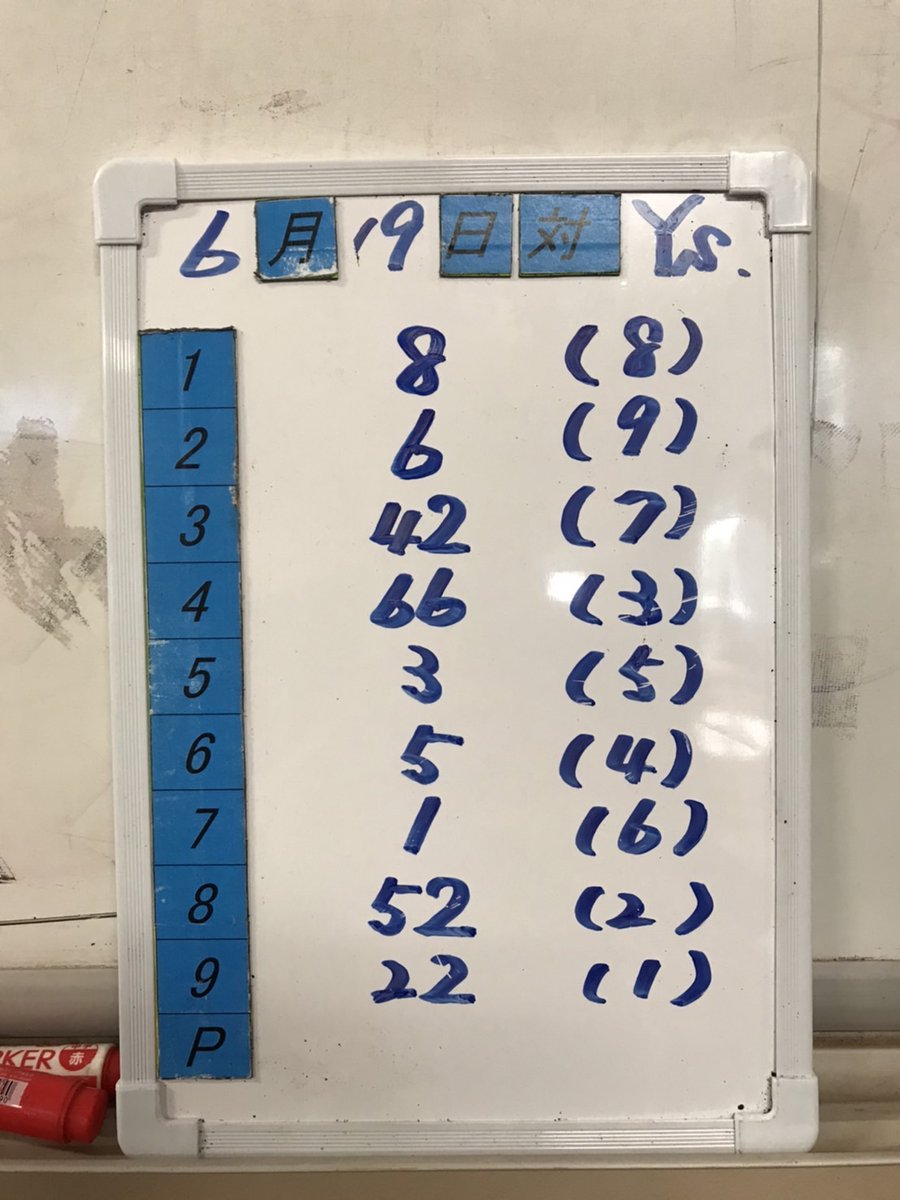 6月19日対 Ys.
1 8 (8)
2 6 (9)
3 42 (7)
4 66 (3)
5 3 (5)
6 5 (4)
7 1 (6)
8 52 (2)
9 22 (1)
P
RKER 赤